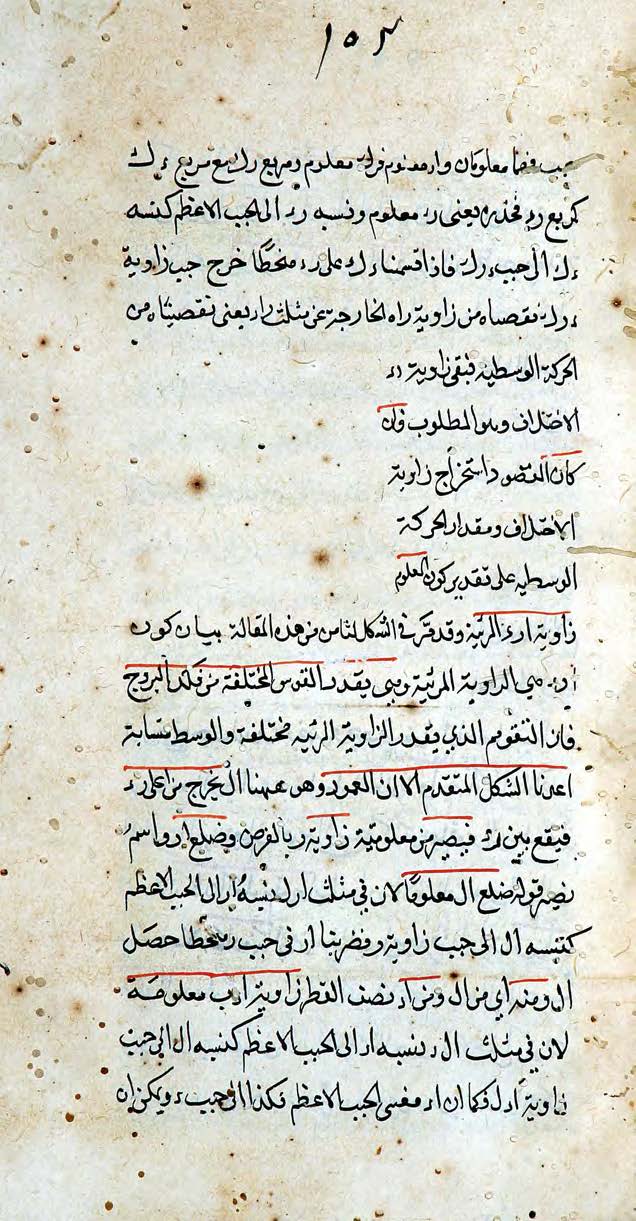 ١٥٢
جيب فهما معلومان وار معلوم فرك معلوم ومربع رك مع مربع ءك
كمربع رء فجذره يعنى رء معلوم ونسبه رء الى الجيب الاعظم كنسبه
ءك الى جيب ءرك فاذا قسمنا ءك على رء منحطا خرج جيب زاوية
ءرك نقصناه من زاوية راه الخارجة عن مثلث راء يعنى نقصناه من
الحركة الوسطيه فبقى زاوية
الاختلاف وهو المطلوب فان
كان المقصود استخراج زاوية
الاختلاف ومقدار الحركة
الوسطيه على تقدير كون المعلوم
زاوية ارء المرئية وقد مر فى الشكل الثامن من هذه المقالة بيان كون
هى الزاوية المرئية وهى بقدر القوس المختلفة من فلك البروج
فان التقويم الذي بقدر الزاوية المرئيه مختلفة والوسط متشابة
اعدنا الشكل المتقدم الا ان العمود وهو ههنا ال يخرج من ا على رء
فيقع بين رء فيصير من معلومية زاوية ر بالفرض وضلع ار
يصير قوله ضلع ال معلوما لان فى مثلث ارل نسبة ار الى الجيب الاعظم
كنسبه ال الى جيب زاوية ر فضربنا ار فى جيب ر منحطا حصل
ال ومنه اي من ال ومن اء نصف القطر زاوية معلومة
لان فى مثلث ال ء نسبه اء الى الجيب الاعظم كنسبه ال الى جيب
زاوية فكما ان اء الجيب الاعظم فكذا ال جيب ء ويمكن ان